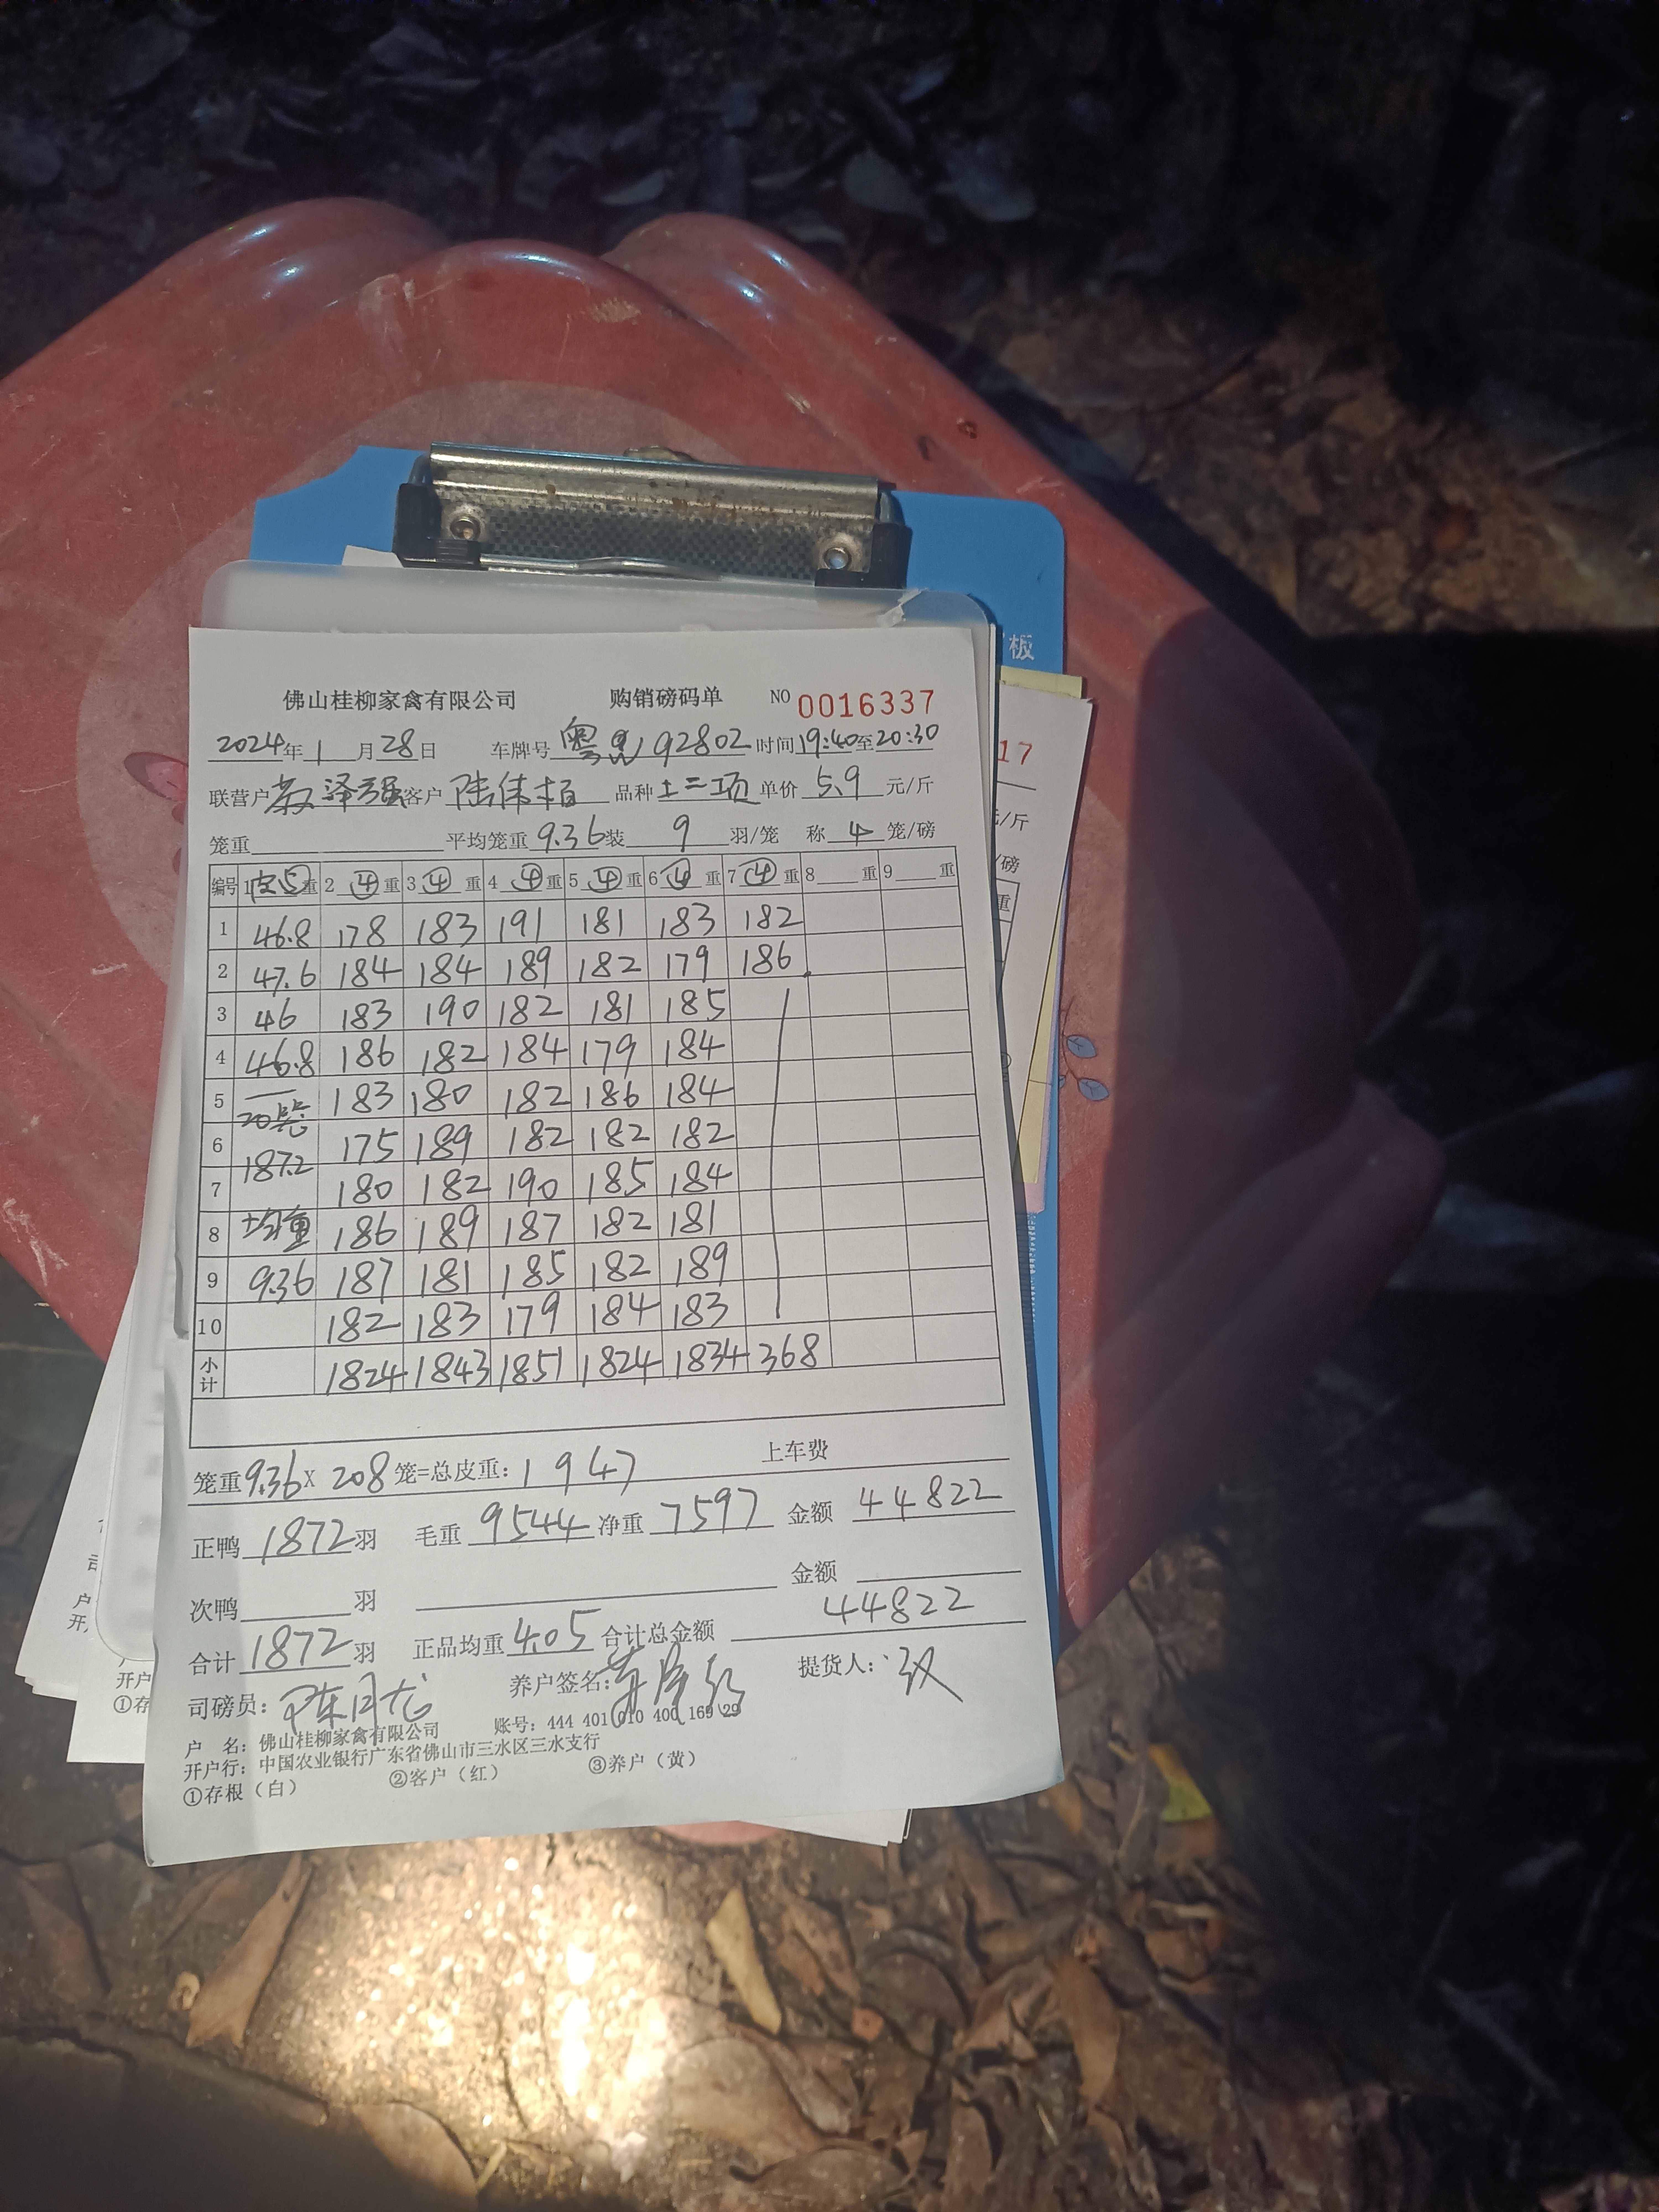 板
佛山桂柳家禽有限公司 购销磅码单 NO 0016337
2024年 1 月 28 日 车牌号 粤 92802 时间 19:40 至 20:30
联营户 泽强 客户 陆伟栢 品种 土二项 单价 5.9 元/斤
笼重 平均笼重 9.36 装 9 羽/笼 称 4 笼/磅
编号 1 皮⑤ 重 2 ④ 重 3 ④ 重 4 ④ 重 5 ④ 重 6 ④ 重 7 ④ 重 8 重 9 重
1 46.8 178 183 191 181 183 182
2 47.6 184 184 189 182 179 186.
3 46 183 190 182 181 185
4 46.8 186 182 184 179 184
5 20笼 183 180 182 186 184
6 187.2 175 189 182 182 182
7 180 182 190 185 184
8 均重 186 189 187 182 181
9 9.36 187 181 185 182 189
10 182 183 179 184 183
小计 1824 1843 1851 1824 1834 368
笼重 9.36 X 208 笼=总皮重: 1947 上车费
正鸭 1872 羽 毛重 9544 净重 7597 金额 44822
次鸭 羽 金额
合计 1872 羽 正品均重 4.05 合计总金额 44822
司磅员: 陈月龙 养户签名: 提货人:
户 名: 佛山桂柳家禽有限公司 账号: 444 401 010 400 169 29
开户行: 中国农业银行广东省佛山市三水区三水支行
①存根(白) ②客户(红) ③养户(黄)
17
元/斤
/磅
重
户
开
开户
①存